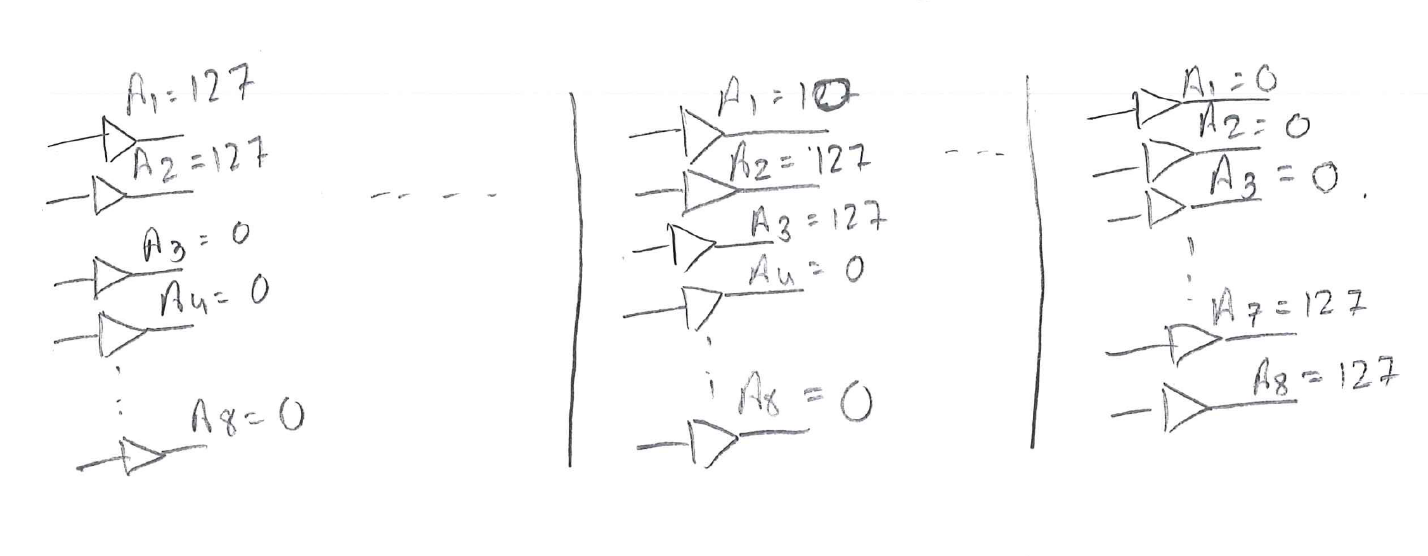 A1=127
A2=127
A3=0
A4=0
A8=0
A2=127
A3=127
A4=0
A8=0
A1=0
A2=0
A3=0
A7=127
A8=127